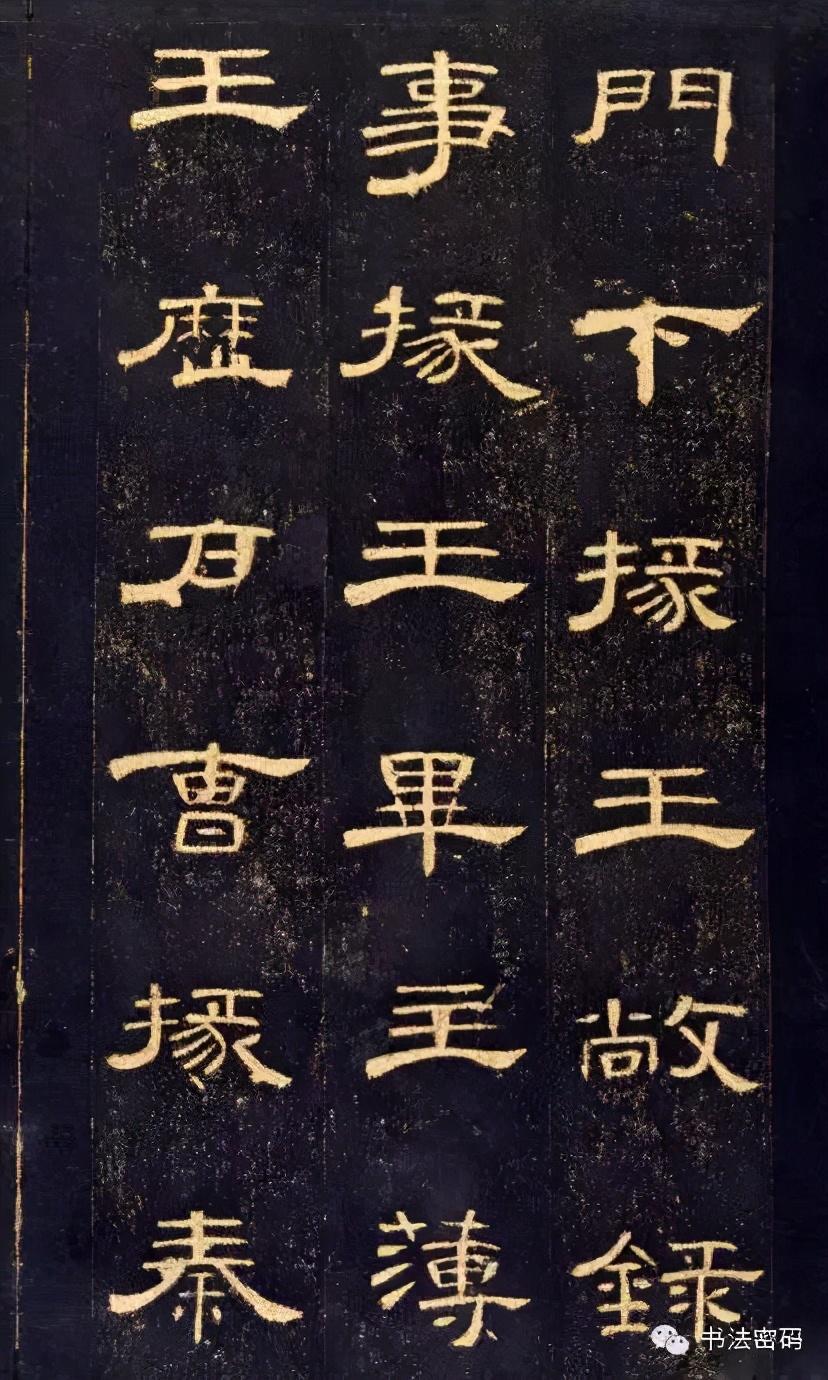 門下掾王敞錄
事掾王畢主薄
王歷戶曹掾秦
书法密码